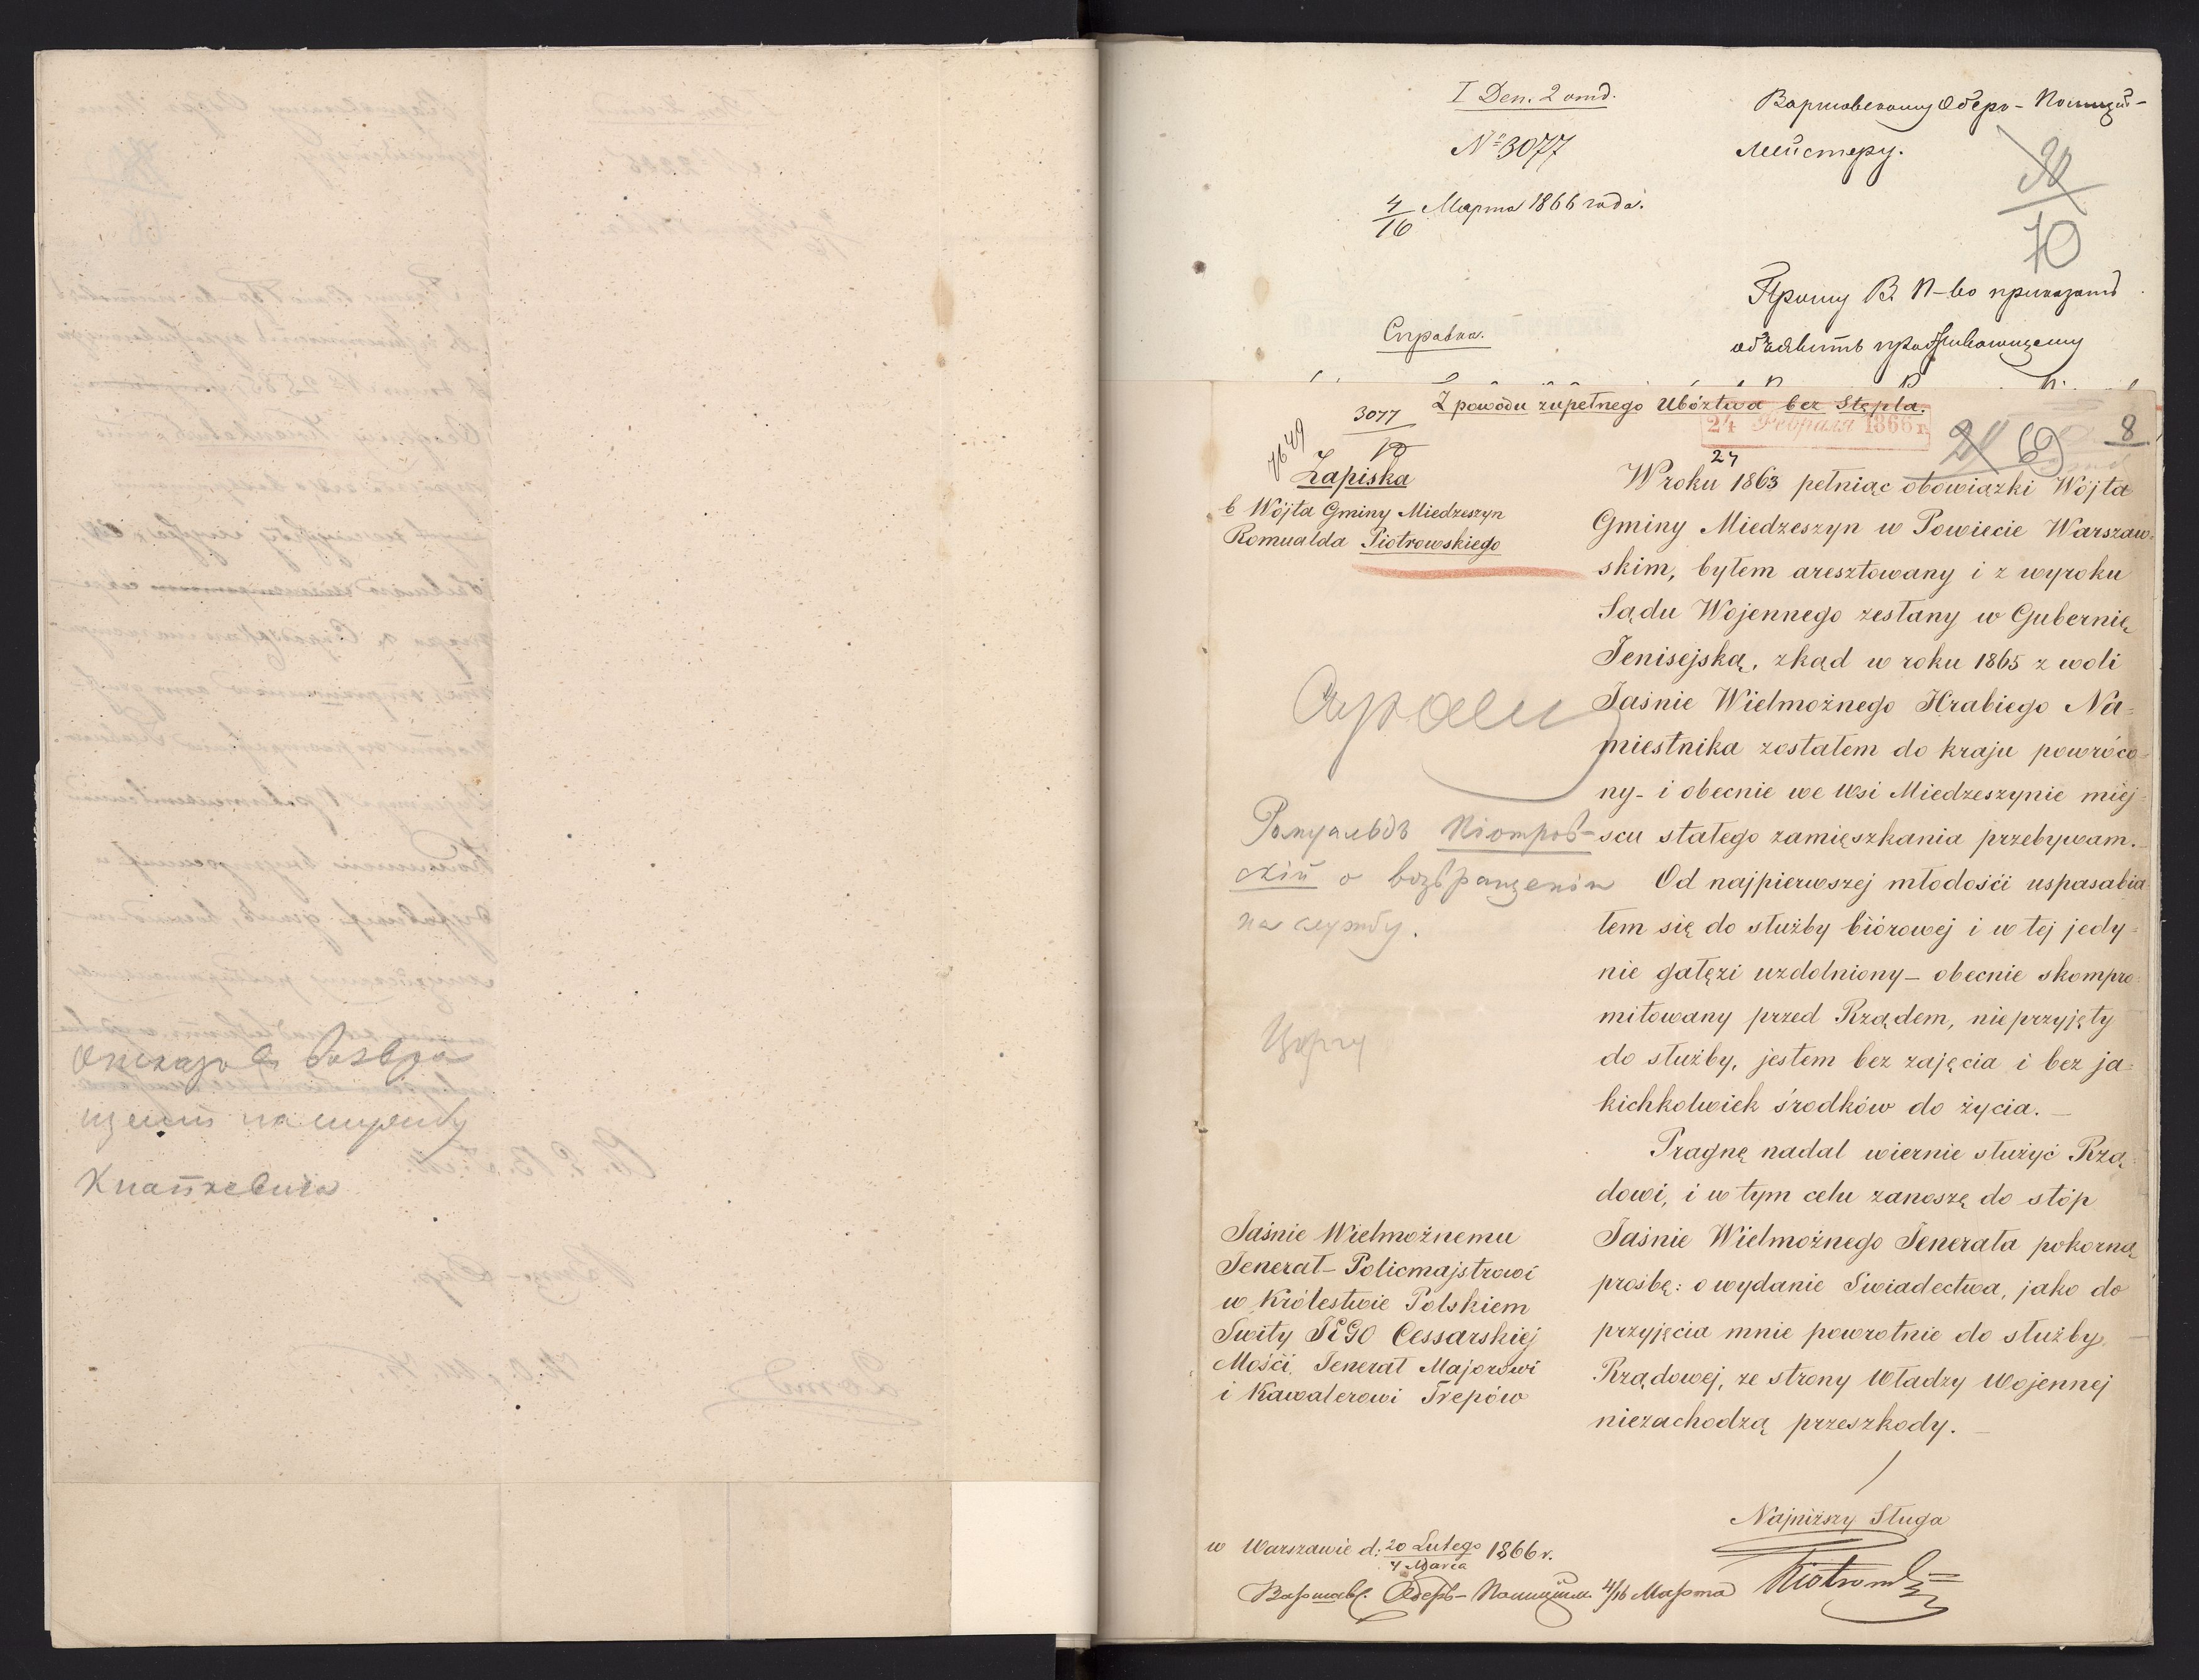 Отказъ въ возвра
щеніи на службу
I Деп. 2 отд.
№ 3077
4/16 Марта 1866 года.
Справка.
Варшавскому Оберъ-Полицій-
мейстеру.
30
70
Прошу В. П-во приказать
объявить проживающему
Z powodu zupełnego Ubóztwa bez Stępla.
24 Февраля 1866 г.
3077
27
69
8
Zapiska
b Wójta Gminy Miedzeszyn
Romualda Piotrowskiego
W roku 1863 pełniąc obowiązki Wójta
Gminy Miedzeszyn w Powiecie Warszaw-
skim, byłem aresztowany i z wyroku
Sądu Wojennego zesłany w Gubernię
Jenisejską, zkąd w roku 1865 z woli
Jaśnie Wielmożnego Hrabiego Na=
miestnika zostałem do kraju powróco=
ny - i obecnie we Wsi Miedzeszynie miej=
scu stałego zamięszkania przebywam. -
Od najpierwszej młodości uspasabia
łem się do służby biórowej i w tej jedy=
nie gałęzi uzdolniony - obecnie skompro=
mitowany przed Rządem, nieprzyjęty
do służby, jestem bez zajęcia i bez ja=
kichkolwiek środków do życia. -
Pragnę nadal wiernie służyć Rzą=
dowi, i w tym celu zanoszę do stóp
Jaśnie Wielmożnego Jenerała pokorną
prośbę: o wydanie Swiadectwa, jako do
przyjęcia mnie powrotnie do służby
Rządowej, ze strony Władzy Wojennej
niezachodzą przeszkody. -
Ромуальдъ Піотров-
скій о возвращеніи
на службу.
Jaśnie Wielmożnemu
Jenerał-Policmajstrowi
w Królestwie Polskiem
Swity JEGO Cessarskiej
Mości, Jenerał Majorowi
i Kawalerowi Trepów
Najniższy Sługa
Piotrowski
w Warszawie d: 20 Lutego / 4 Marca 1866 r.
Варшавс. Оберъ-Полицijм. 4/16 Марта